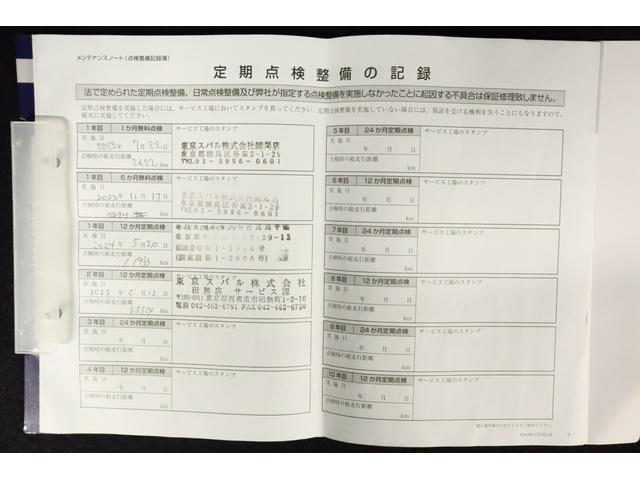 メンテナンスノート(点検整備記録簿)
定期点検整備の記録
法で定められた定期点検整備、日常点検整備及び弊社が指定する点検整備を実施しなかったことに起因する不具合は保証修理致しません。
定期点検整備を実施した場合には、サービス工場においてスタンプを貰ってください。定期点検整備を実施していない場合には、保証を受ける権利を失うことにもなりますので、
確実に実施してください。
1年目 1か月無料点検 サービス工場のスタンプ
実施日
2023年7月22日
点検時の総走行距離
2622 km
東京スバル株式会社
東京都練馬区谷原2-1-29
TEL03-3996-0601
1年目 6か月無料点検 サービス工場のスタンプ
実施日
2023年11月17日
点検時の総走行距離
km
東京スバル株式会社
東京都練馬区谷原2-1-29
TEL03-3996-0601
1年目 12か月定期点検 サービス工場のスタンプ
実施日
2024年5月20日
点検時の総走行距離
km
2年目 12か月定期点検 サービス工場のスタンプ
実施日
2025年5月12日
点検時の総走行距離
km
東京スバル株式会社
田無店 サービス課
〒188-0011 東京都西東京市田無町1-2-10
電話042-462-6791 FAX042-462-6730
3年目 24か月定期点検 サービス工場のスタンプ
実施日
年 月 日
点検時の総走行距離
km
4年目 12か月定期点検 サービス工場のスタンプ
実施日
年 月 日
点検時の総走行距離
km
5年目 24か月定期点検 サービス工場のスタンプ
実施日
年 月 日
点検時の総走行距離
km
6年目 12か月定期点検 サービス工場のスタンプ
実施日
年 月 日
点検時の総走行距離
km
7年目 24か月定期点検 サービス工場のスタンプ
実施日
年 月 日
点検時の総走行距離
km
8年目 12か月定期点検 サービス工場のスタンプ
実施日
年 月 日
点検時の総走行距離
km
9年目 24か月定期点検 サービス工場のスタンプ
実施日
年 月 日
点検時の総走行距離
km
10年目 12か月定期点検 サービス工場のスタンプ
実施日
年 月 日
点検時の総走行距離
km